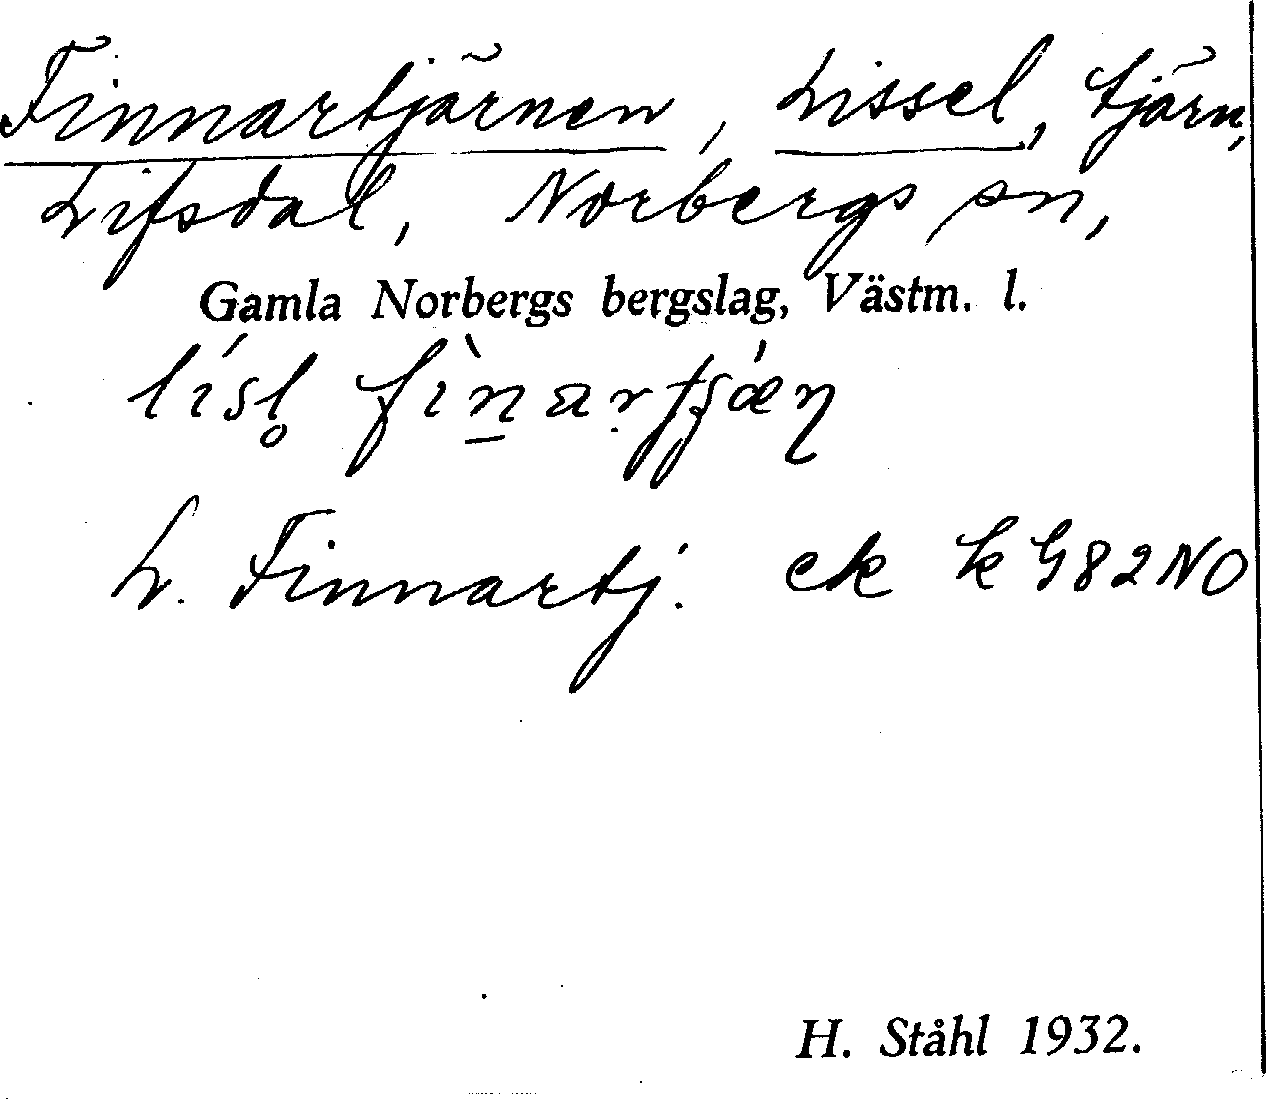 Finnartjärnen, Lissel, tjärn,
Lifsdal, Norbergs sn,
Gamla Norbergs bergslag, Västm. l.
L. Finnartj. ek k G 82 NO
H. Ståhl 1932.